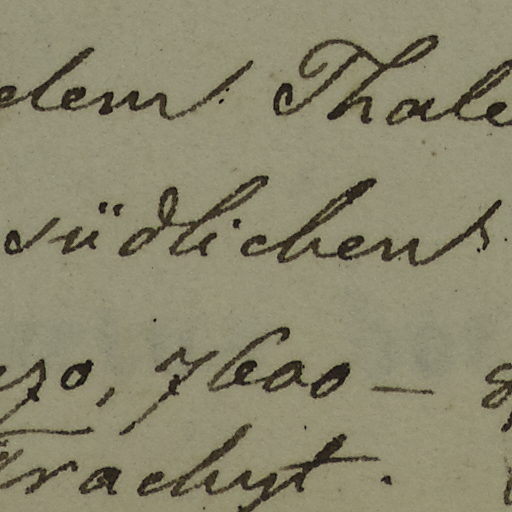 dem Thale
südlichen
7600 –
Trachyt.